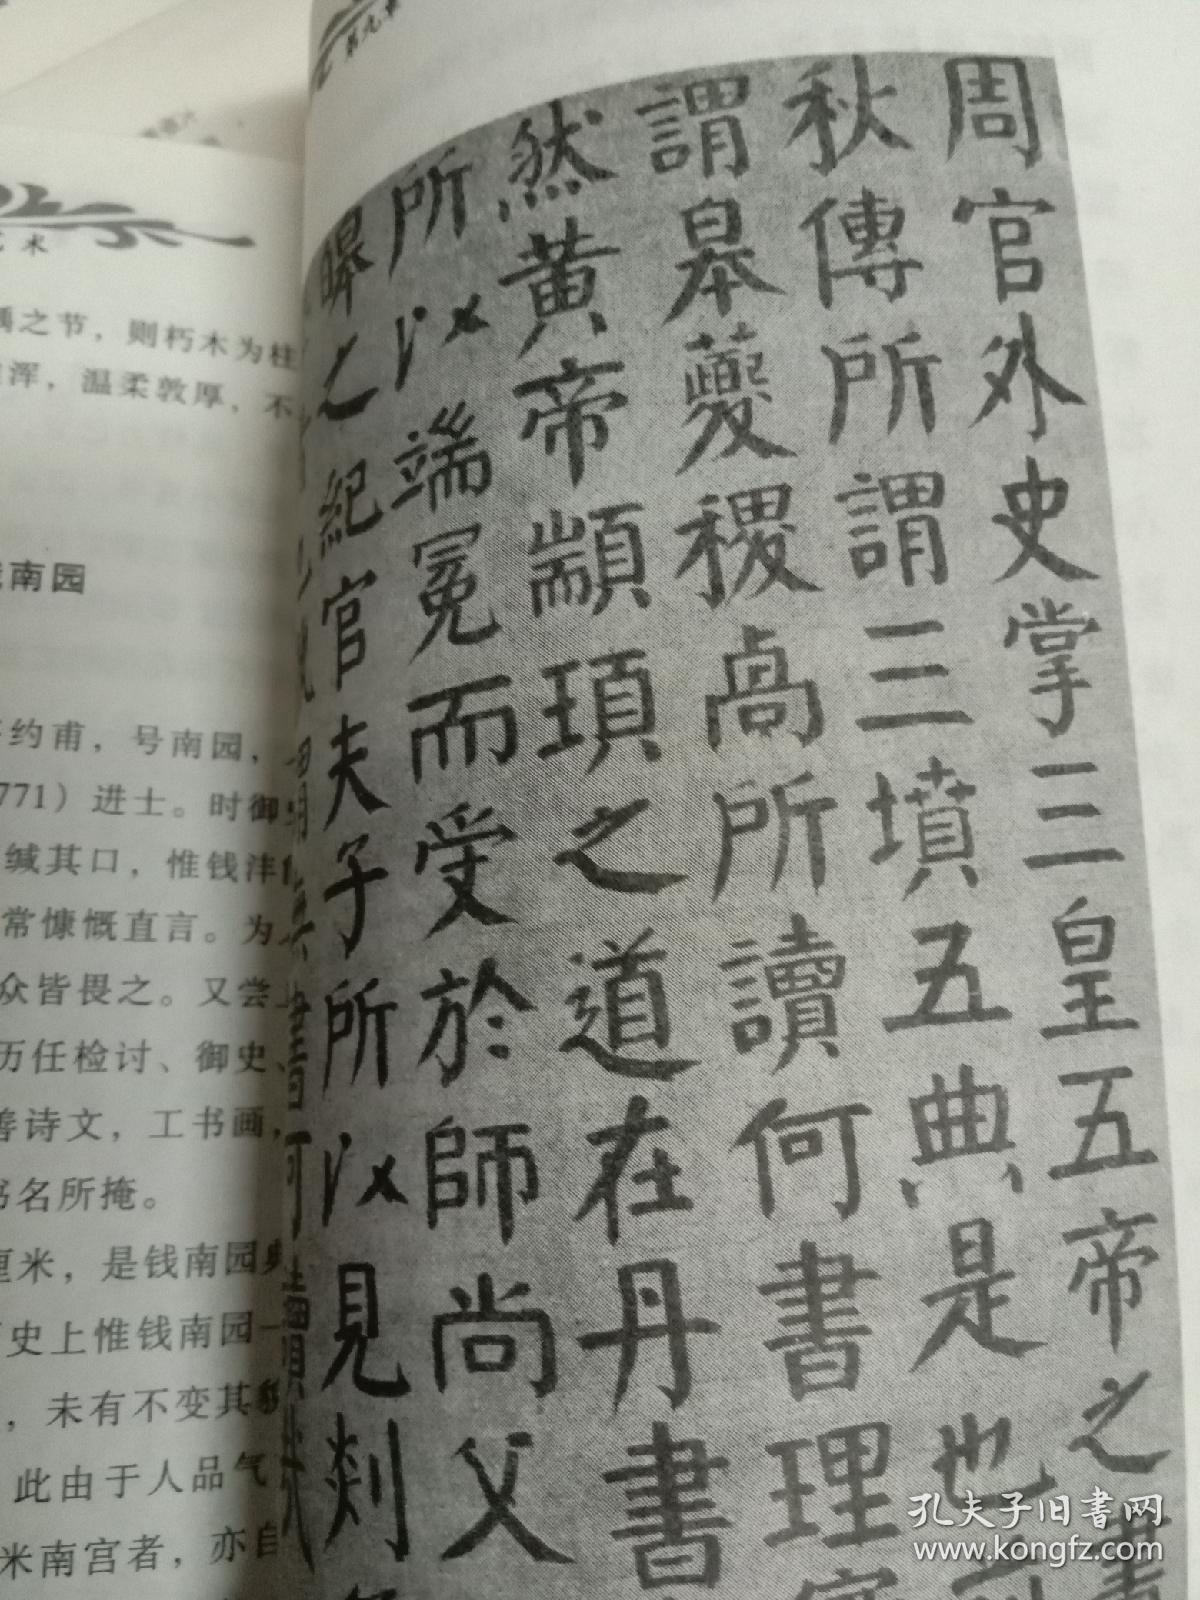 第九章
周官外史掌三皇五帝之書
秋傳所謂三墳五典是也
謂皋夔稷卨所讀何書理
然黃帝顓頊之道在丹書
所以端冕而受於師尚父
皞之紀官夫子所以見剡
术
之节，则朽木为柱
浑，温柔敦厚，不
南园
约甫，号南园，
771）进士。时御
缄其口，惟钱沣
常慷慨直言。为
众皆畏之。又尝
历任检讨、御史、
善诗文，工书画，
书名所掩。
厘米，是钱南园
史上惟钱南园一
，未有不变其貌
此由于人品气
米南宫者，亦自
孔夫子旧书网
www.kongfz.com